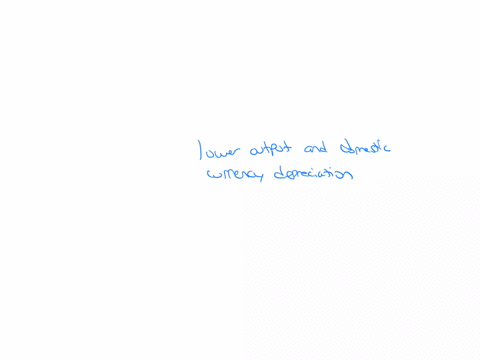 lower output and domestic
currency depreciation